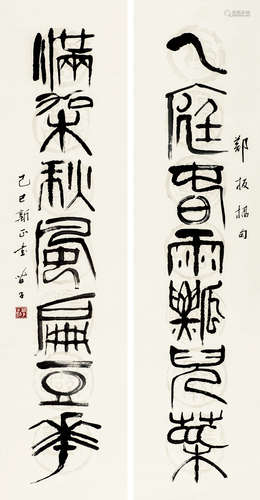 入庭春雨瓢兒菜
鄭板橋句
滿架秋風扁豆華
己巳新正書 苗子